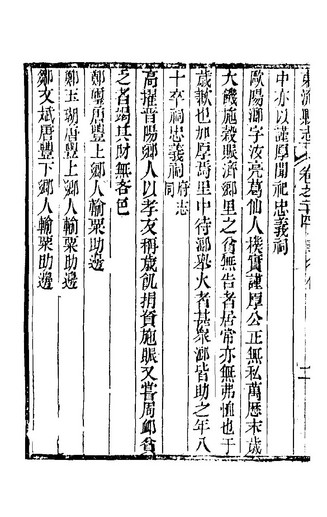 中亦以謹厚聞祀忠義祠
歐陽瀏字汝亮葛仙人樸實謹厚公正無私萬歷末歲
大饑施穀賑濟鄉里之貧無告者居常亦無弗恤也于
歲歉也加厚葛里中待瀏舉火者甚衆瀏皆助之年八
十卒祠忠義祠府志同
高擢晉陽鄉人以孝友稱歲飢捐資施賑又嘗周鄉貧
之者竭其財無吝色
鄭 唐豐上鄉人輸粟助邊
鄭玉瑚唐豐上鄉人輸粟助邊
鄒文斌唐豐下鄉人輸粟助邊